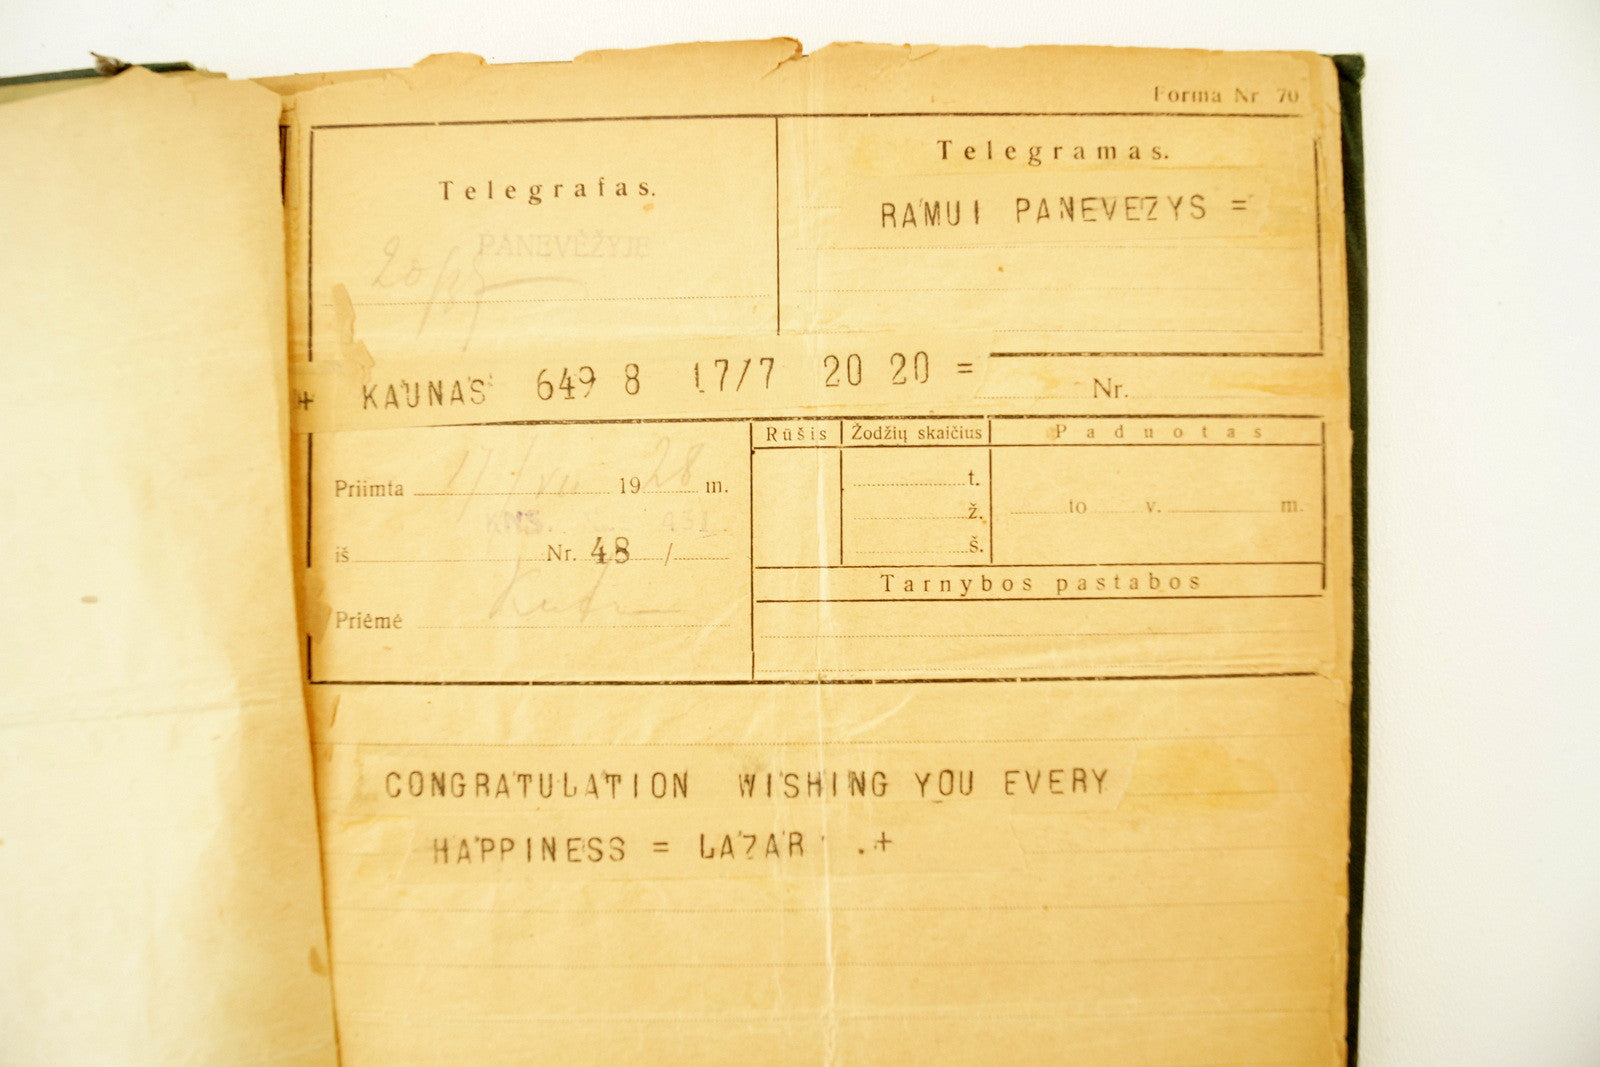 Forma Nr 70
Telegrafas.
PANEVĖŽYJE
Telegramas.
RAMUI PANEVEZYS =
+ KAUNAS 649 8 17/7 20 20 =
Nr.
Rūšis Žodžių skaičius Paduotas
Priimta 17/VII 1928 m.
t.
ž.
š.
to v. m.
KNS. 431
iš Nr. 48 /
Tarnybos pastabos
Priėmė
CONGRATULATION WISHING YOU EVERY
HAPPINESS = LAZAR .+